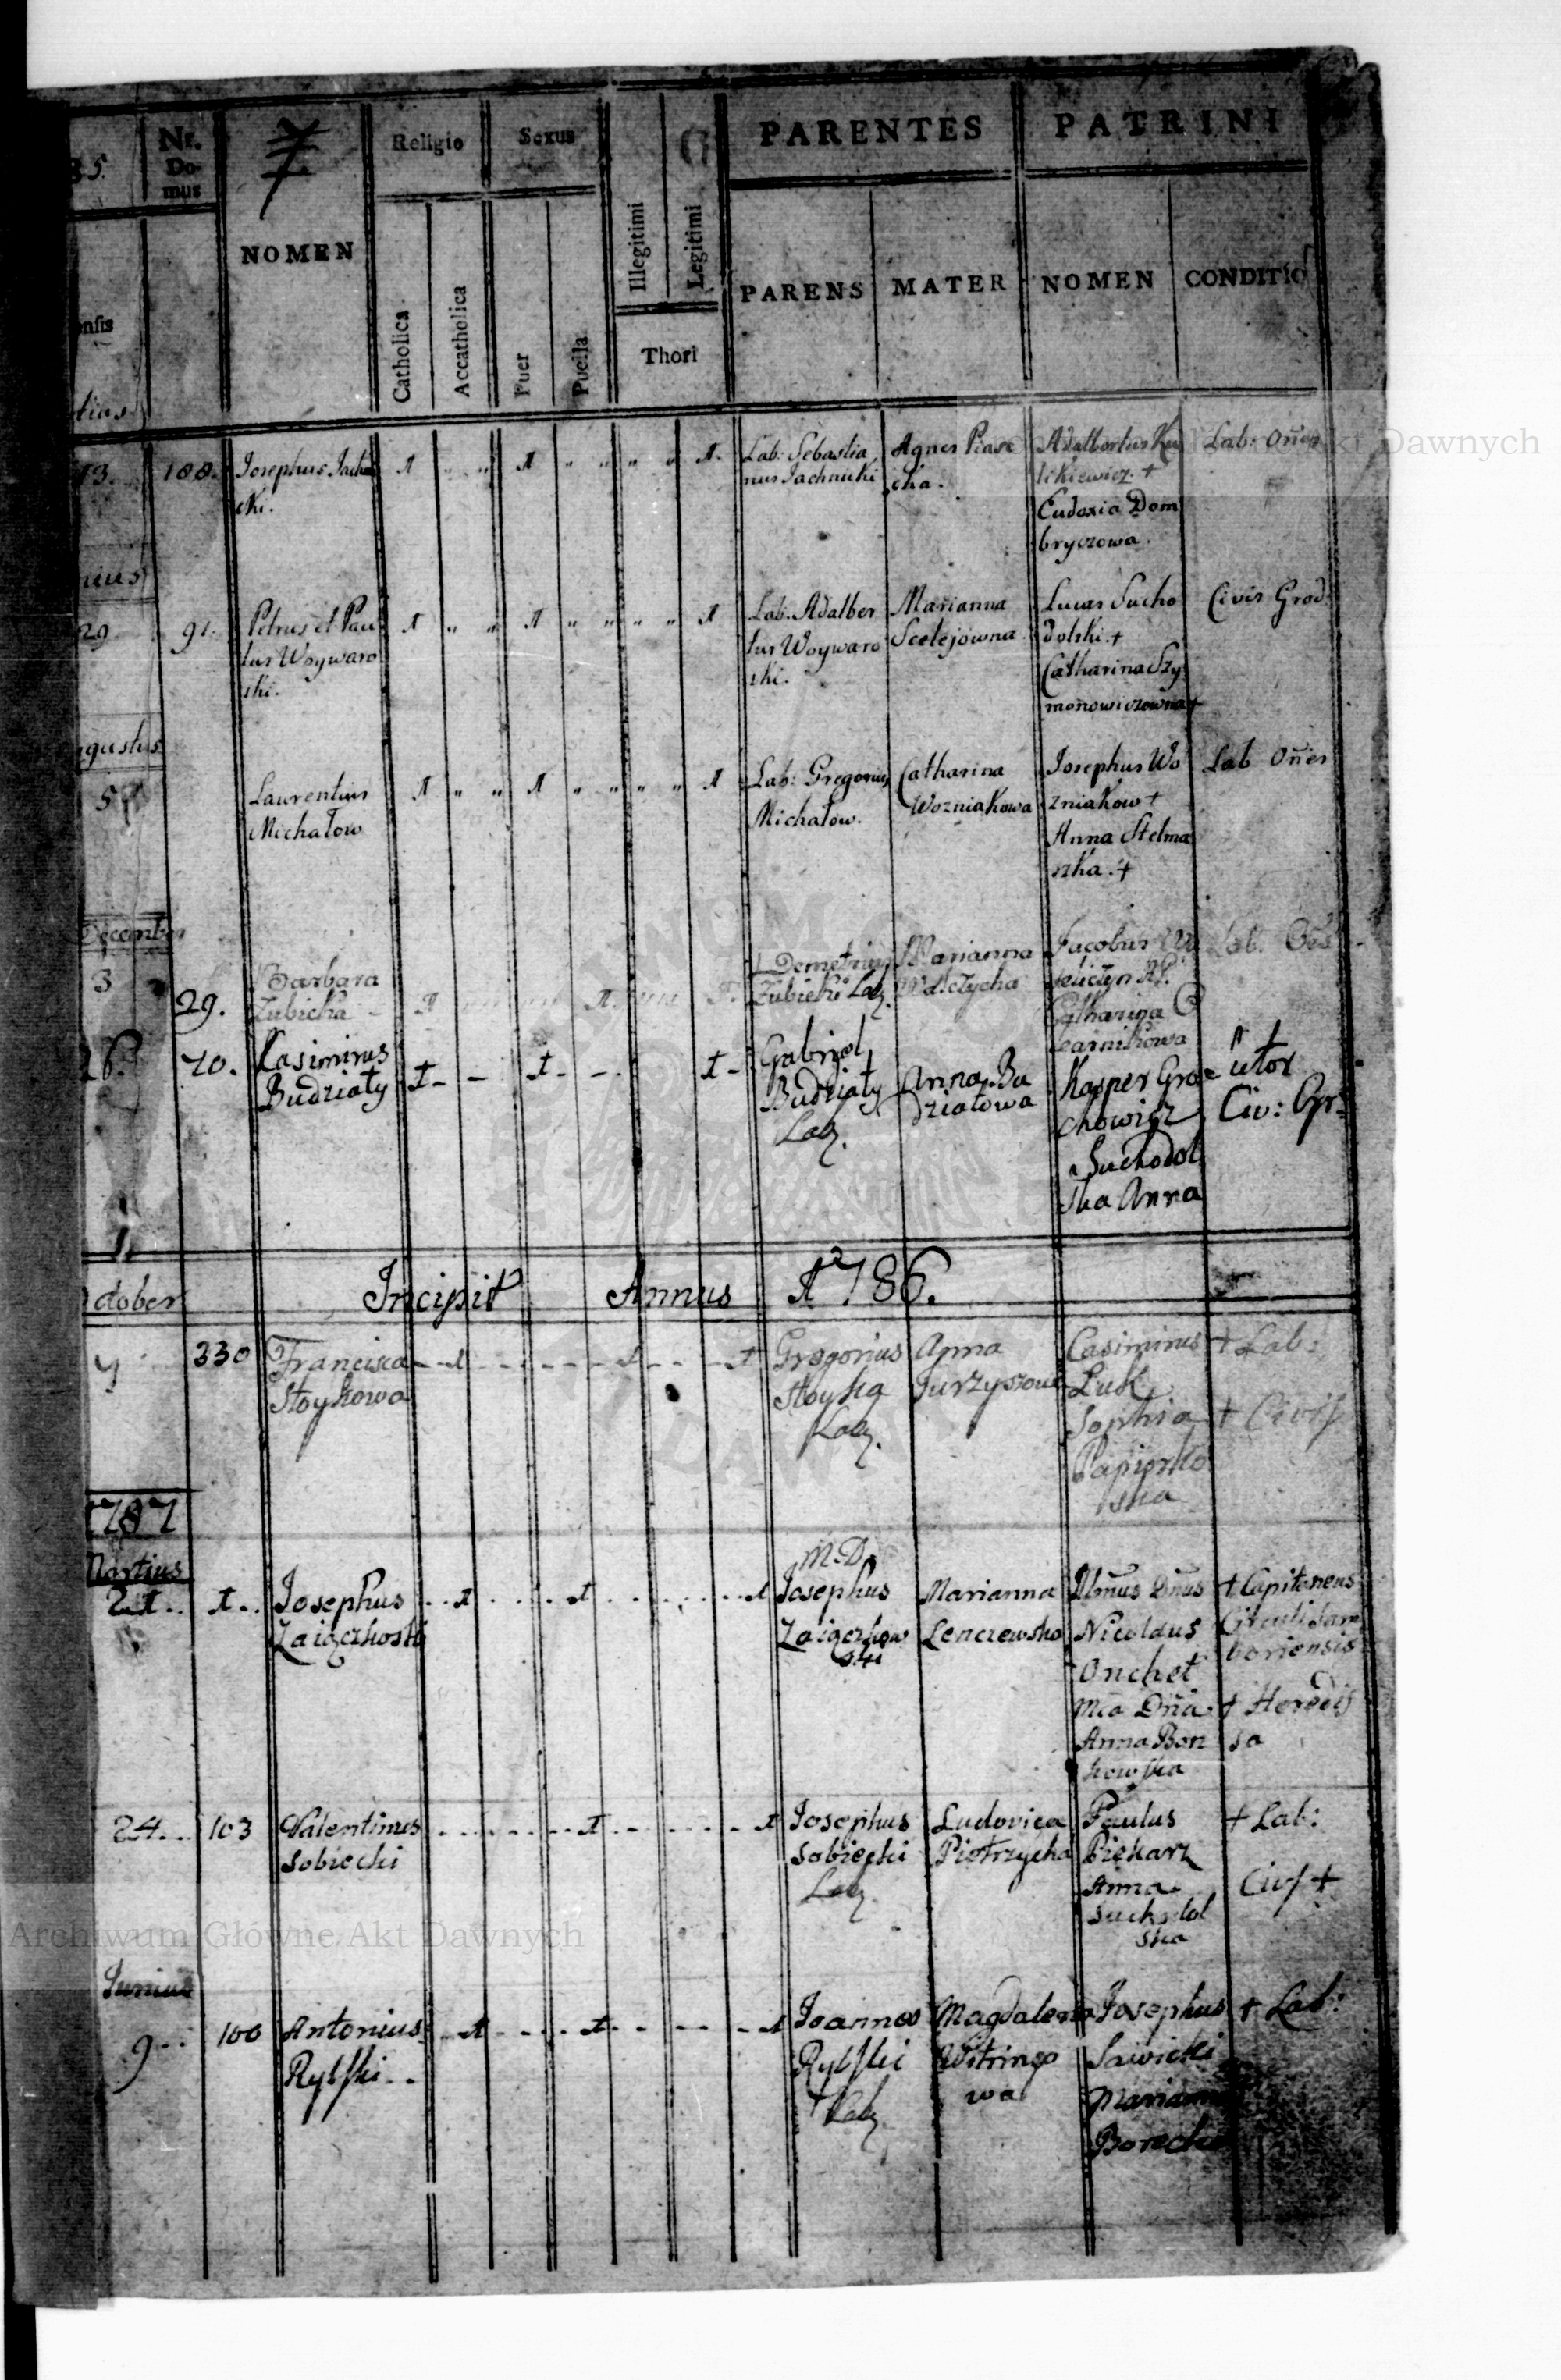 Nr.
Do-
mus
NOMEN
Religio
Catholica
Accatholica
Sexus
Puer
Puella
Illegitimi
Legitimi
Thori
PARENTES
PARENS
MATER
PATRINI
NOMEN
CONDITIO
13.
188.
Josephus Jachni
cki.
Lab: Sebastia
nus Jachnicki
Agnes Piase
cka.
Adalbertus Ku
likiewicz. +
Eudoxia Dom
bryczowa.
Lab: Oñes
29
91.
Petrus et Pau
lus Woywaro
ski.
Lab. Adalber
tus Woywaro
ski.
Marianna
Scelejowna
Lucas Sucho
dolski. +
Catharina Szy
monowiczowna +
Civis Grod:
5
Laurentius
Michałow
Lab: Gregorius
Michałow.
Catharina
Wozniakowa
Josephus Wo
zniakow +
Anna Stelma
szka. +
Lab Oñes
December
3
29.
Barbara
Zubicka
Demetrius
Zubicki Lab.
Marianna
Jacobus
Catharina
Lab.
26.
70.
Casimirus
Budziały
Gabriel
Budziały
Lab.
Anna Bu
działowa
Kasper Gro=
chowicz
Suchodol
ska Anna
Civ:
Incipit Annus 1786.
330
Francisca
Stoykowa
Gregorius
Stoyka
Lab.
Anna
Casimirus
Luk
Sophia
+ Lab:
+ Civis
1787
Martius
21..
1..
Josephus
Zaiączkoski
M.D.
Josephus
Zaiączkow
ski
Marianna
Lenczewska
Illmus Dnus
Nicolaus
Onchet
Mca Dña
Anna Bon
kowska
+ Capitaneus
Circuli Sam
boriensis
+ Heredis
sa
24..
103
Valentinus
Sobiecki
Josephus
Sobiecki
Lab.
Ludovica
Pietrzycka
Paulus
Piekarz
Anna
Suchodol
ska
+ Lab:
Civis +
Junius
9..
100
Antonius
Rylski..
Joannes
Rylski
Lab.
Magdalena
Witringo
wa
Josephus
Sawicki
Marianna
Borecka
+ Lab:
Archiwum Główne Akt Dawnych